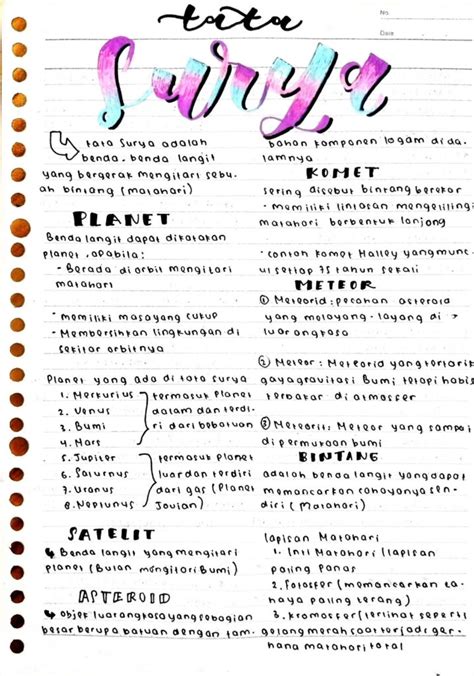 tata
Surya
No.
Date
tata Surya adalah
benda-benda langit
yang bergerak mengitari sebu-
ah bintang (matahari)
PLANET
Benda langit dapat dikatakan
planet, apabila:
- Berada di orbit mengitari
matahari
- memiliki masa yang cukup
- Membersihkan lingkungan di
sekitar orbitnya
Planet yang ada di tata surya
1. Merkurius
2. Venus
3. Bumi
4. Mars
termasuk planet
dalam dan terdi-
ri dari bebatuan
5. Jupiter
6. Saturnus
7. Uranus
8. Neptunus
termasuk planet
luar dan terdiri
dari gas (planet
Jovian)
SATELIT
Benda langit yang mengitari
planet (Bulan mengitari Bumi)
ASTEROID
objek luar angkasa yang sebagian
besar berupa batuan dengan tam-
bahan komponen logam di da-
lamnya
KOMET
sering disebut bintang berekor
- memiliki lintasan mengelilingi
matahari berbentuk lonjong
- contoh komet Halley yang munc-
ul setiap 75 tahun sekali
METEOR
① Meteorid : pecahan asteroid
yang melayang-layang di
luar angkasa
② Meteor : Meteorid yang tertarik
gaya gravitasi Bumi tetapi habis
terbakar di atmosfer
③ Meteorit : Meteor yang sampai
di permukaan bumi
BINTANG
adalah benda langit yang dapat
memancarkan cahayanya sen-
diri (Matahari)
lapisan Matahari
1. Inti Matahari (lapisan
paling panas
2. Fotosfer (memancarkan ca-
haya paling terang)
3. kromosfer (terlihat seperti
gelang merah saat terjadi ger-
hana matahari total